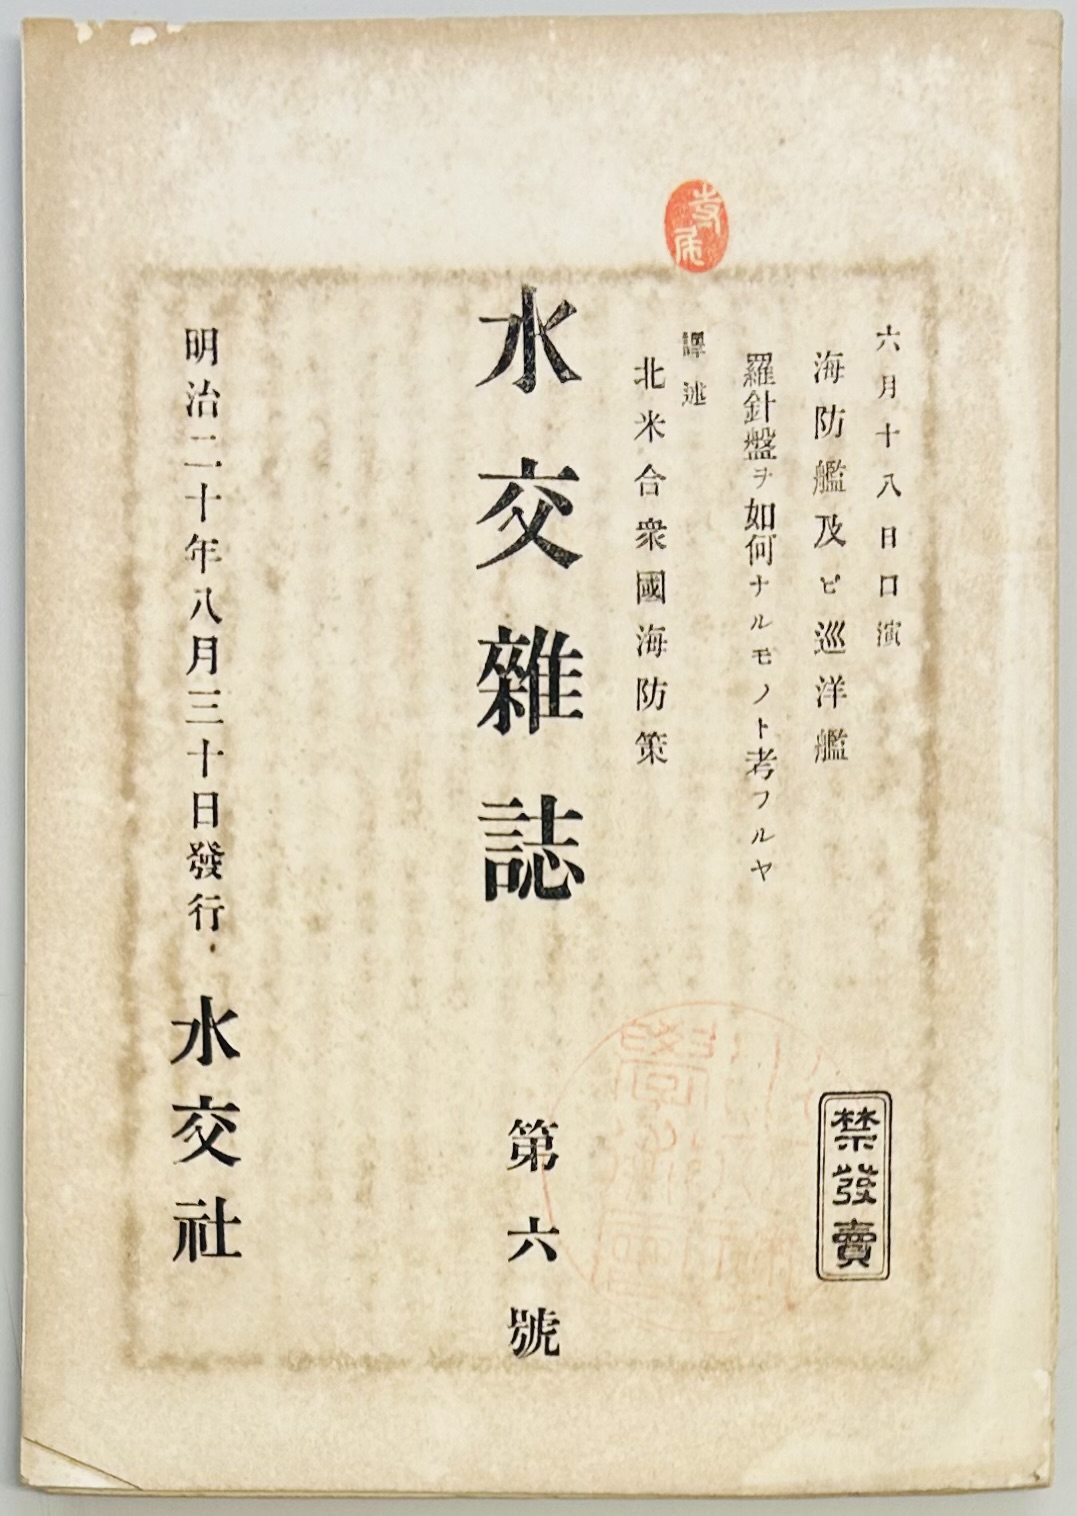 六月十八日口演
海防艦及ビ巡洋艦
羅針盤ヲ如何ナルモノト考フルヤ
譯述
北米合衆國海防策
水交雜誌 第六號
明治二十年八月三十日發行 水交社
禁發賣